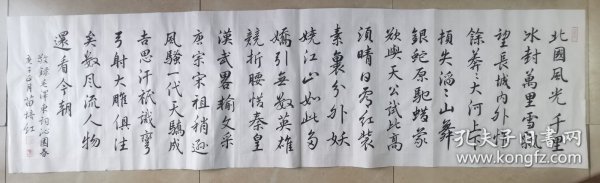 北國風光千里
冰封萬里雪飄
望長城內外惟
餘莽々大河上下
頓失滔々山舞
銀蛇原馳蠟象
欲與天公試比高
須晴日看紅裝
素裹分外妖
嬈江山如此多
嬌引無數英雄
競折腰惜秦皇
漢武畧輸文采
唐宗宋祖稍遜
風騷一代天驕成
吉思汗祇識彎
弓射大雕俱往
矣數風流人物
還看今朝
錄毛澤東詞沁園春
孔夫子旧书网
www.kongfz.com